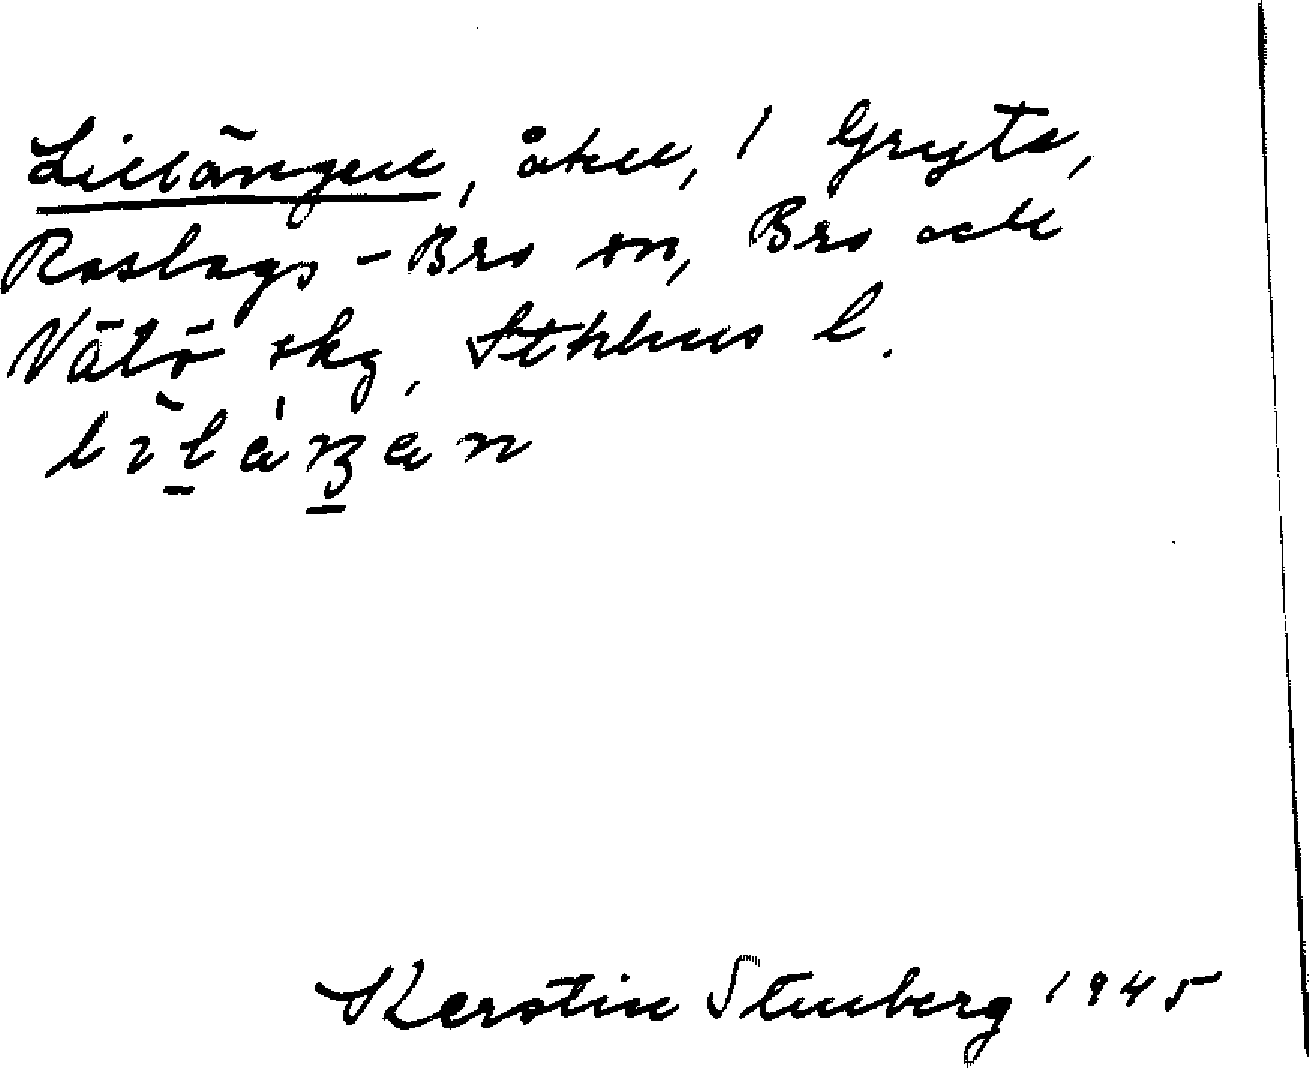 Lillängen, åker, 1 Gryta,
Roslags-Bro sn, Bro och
Vätö skg, Sthlms l.
Kerstin Stenberg 1945